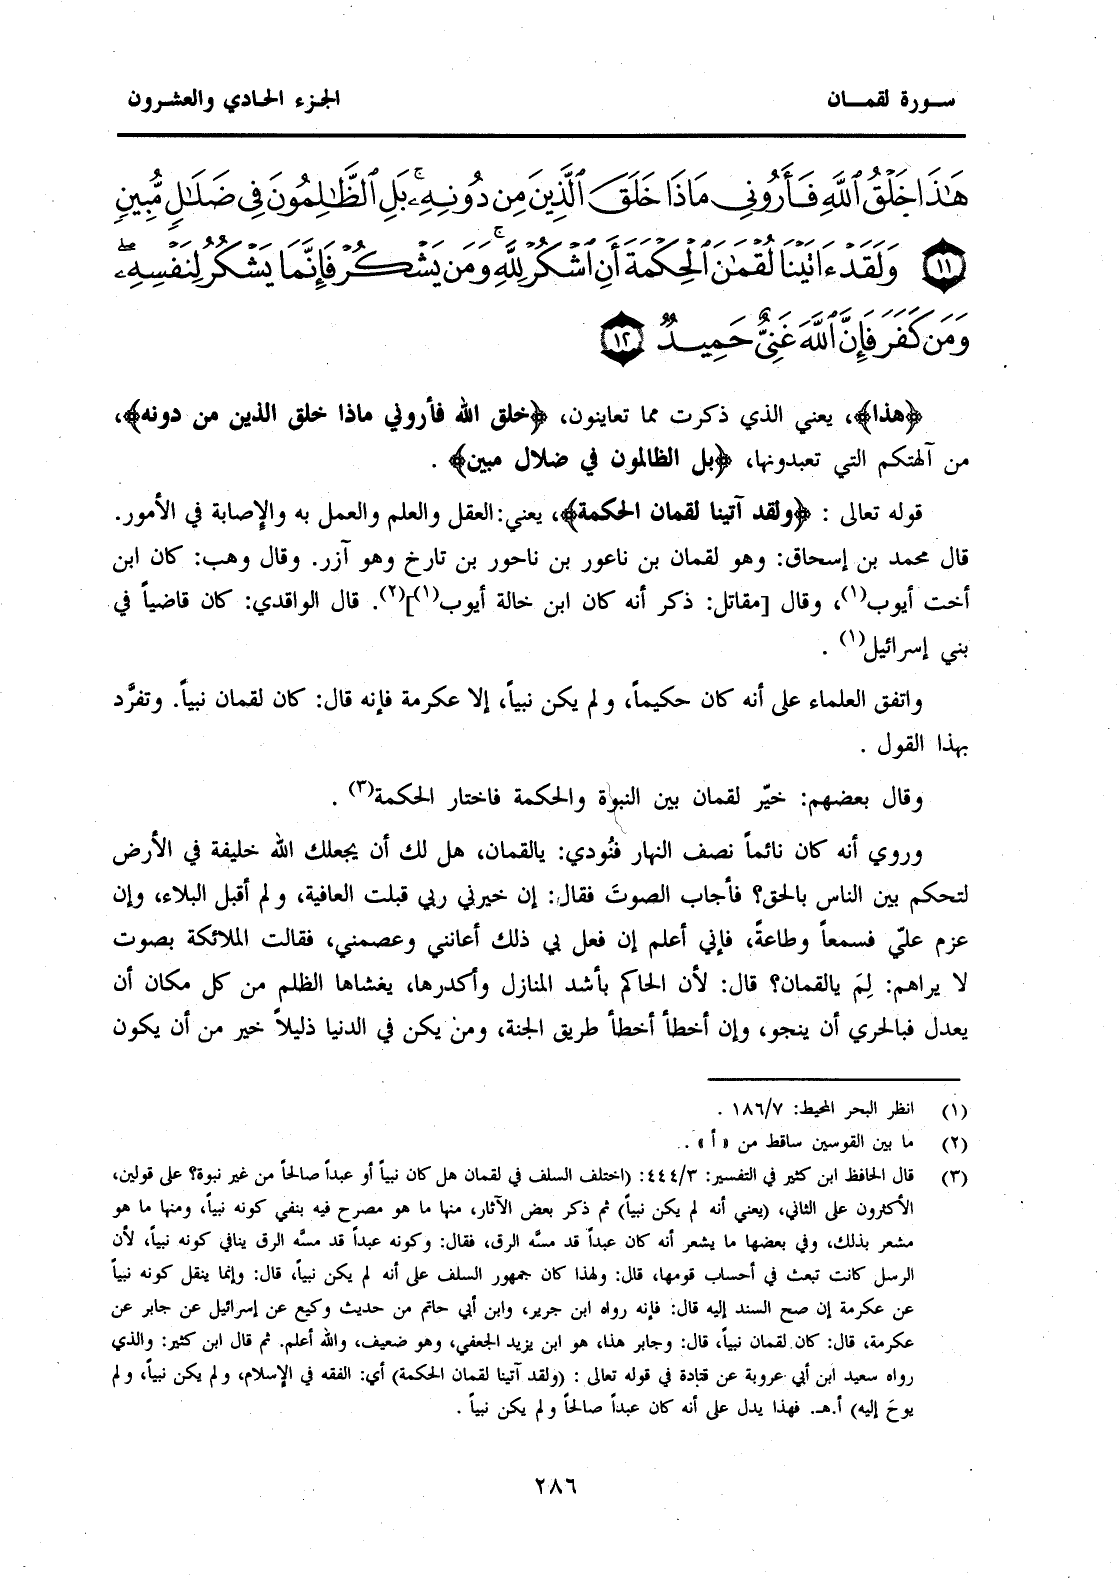 سورة لقمان
الجزء الحادي والعشرون
هَٰذَا خَلْقُ ٱللَّهِ فَأَرُونِى مَاذَا خَلَقَ ٱلَّذِينَ مِن دُونِهِۦ ۚ بَلِ ٱلظَّٰلِمُونَ فِى ضَلَٰلٍ مُّبِينٍ
١١ وَلَقَدْ ءَاتَيْنَا لُقْمَٰنَ ٱلْحِكْمَةَ أَنِ ٱشْكُرْ لِلَّهِ ۚ وَمَن يَشْكُرْ فَإِنَّمَا يَشْكُرُ لِنَفْسِهِۦ ۖ
وَمَن كَفَرَ فَإِنَّ ٱللَّهَ غَنِىٌّ حَمِيدٌ ١٢
﴿هذا﴾، يعني الذي ذكرت مما تعاينون، ﴿خلق الله فأروني ماذا خلق الذين من دونه﴾،
من آلهتكم التي تعبدونها، ﴿بل الظالمون في ضلال مبين﴾ .
قوله تعالى : ﴿ولقد آتينا لقمان الحكمة﴾، يعني: العقل والعلم والعمل به والإصابة في الأمور.
قال محمد بن إسحاق: وهو لقمان بن ناعور بن ناحور بن تارخ وهو آزر. وقال وهب: كان ابن
أخت أيوب(١)، وقال [مقاتل: ذكر أنه كان ابن خالة أيوب(١)](٢). قال الواقدي: كان قاضياً في
بني إسرائيل(١) .
واتفق العلماء على أنه كان حكيماً، ولم يكن نبياً، إلا عكرمة فإنه قال: كان لقمان نبياً. وتفرَّد
بهذا القول .
وقال بعضهم: خيّر لقمان بين النبوة والحكمة فاختار الحكمة(٣) .
وروي أنه كان نائماً نصف النهار فنُودي: يالقمان، هل لك أن يجعلك الله خليفة في الأرض
لتحكم بين الناس بالحق؟ فأجاب الصوتَ فقال: إن خيرني ربي قبلت العافية، ولم أقبل البلاء، وإن
عزم عليّ فسمعاً وطاعةً، فإني أعلم إن فعل بي ذلك أعانني وعصمني، فقالت الملائكة بصوت
لا يراهم: لِمَ يالقمان؟ قال: لأن الحاكم بأشد المنازل وأكدرها، يغشاها الظلم من كل مكان أن
يعدل فبالحري أن ينجو، وإن أخطأ أخطأ طريق الجنة، ومن يكن في الدنيا ذليلاً خير من أن يكون
(١) انظر البحر المحيط: ١٨٦/٧ .
(٢) ما بين القوسين ساقط من «أ» .
(٣) قال الحافظ ابن كثير في التفسير: ٤٤٤/٣: (اختلف السلف في لقمان هل كان نبياً أو عبداً صالحاً من غير نبوة؟ على قولين،
الأكثرون على الثاني، (يعني أنه لم يكن نبياً) ثم ذكر بعض الآثار، منها ما هو مصرح فيه بنفي كونه نبياً، ومنها ما هو
مشعر بذلك، وفي بعضها ما يشعر أنه كان عبداً قد مسَّه الرق، فقال: وكونه عبداً قد مسَّه الرق ينافي كونه نبياً، لأن
الرسل كانت تبعث في أحساب قومها، قال: ولهذا كان جمهور السلف على أنه لم يكن نبياً، قال: وإنما ينقل كونه نبياً
عن عكرمة إن صح السند إليه قال: فإنه رواه ابن جرير، وابن أبي حاتم من حديث وكيع عن إسرائيل عن جابر عن
عكرمة، قال: كان لقمان نبياً، قال: وجابر هذا، هو ابن يزيد الجعفي، وهو ضعيف، والله أعلم. ثم قال ابن كثير: والذي
رواه سعيد ابن أبي عروبة عن قتادة في قوله تعالى : (ولقد آتينا لقمان الحكمة) أي: الفقه في الإسلام، ولم يكن نبياً، ولم
يوحَ إليه) أ.هـ. فهذا يدل على أنه كان عبداً صالحاً ولم يكن نبياً .
٢٨٦